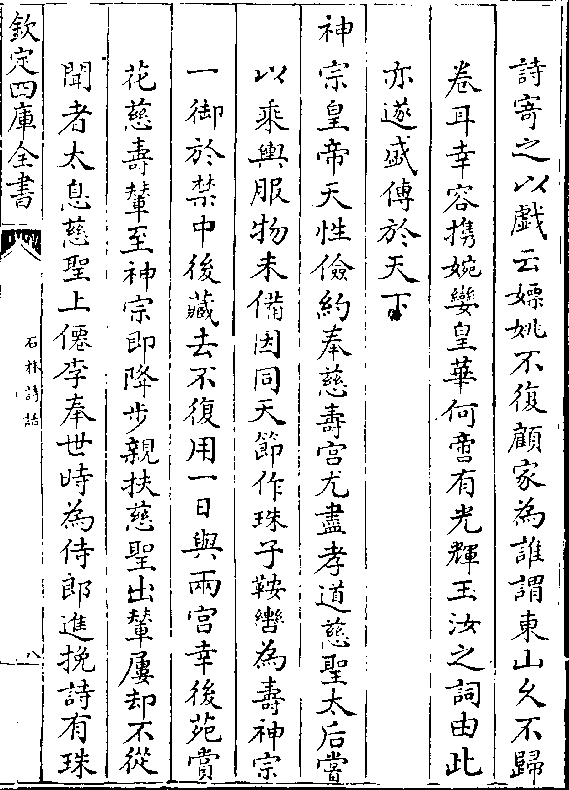 詩寄之以戲云嫖姚不復顧家為誰謂東山久不歸
卷耳幸容携婉孌皇華何啻有光輝玉汝之詞由此
亦遂盛傳於天下
神宗皇帝天性儉約奉慈壽宮尤盡孝道慈聖太后嘗
以乘輿服物未備因同天節作珠子鞍轡為壽神宗
一御於禁中後藏去不復用一日與兩宮幸後苑賞
花慈壽輦至神宗即降步親扶慈聖出輦屢却不從
聞者太息慈聖上僊李奉世時為侍郎進挽詩有珠
欽定四庫全書
石林詩話
八